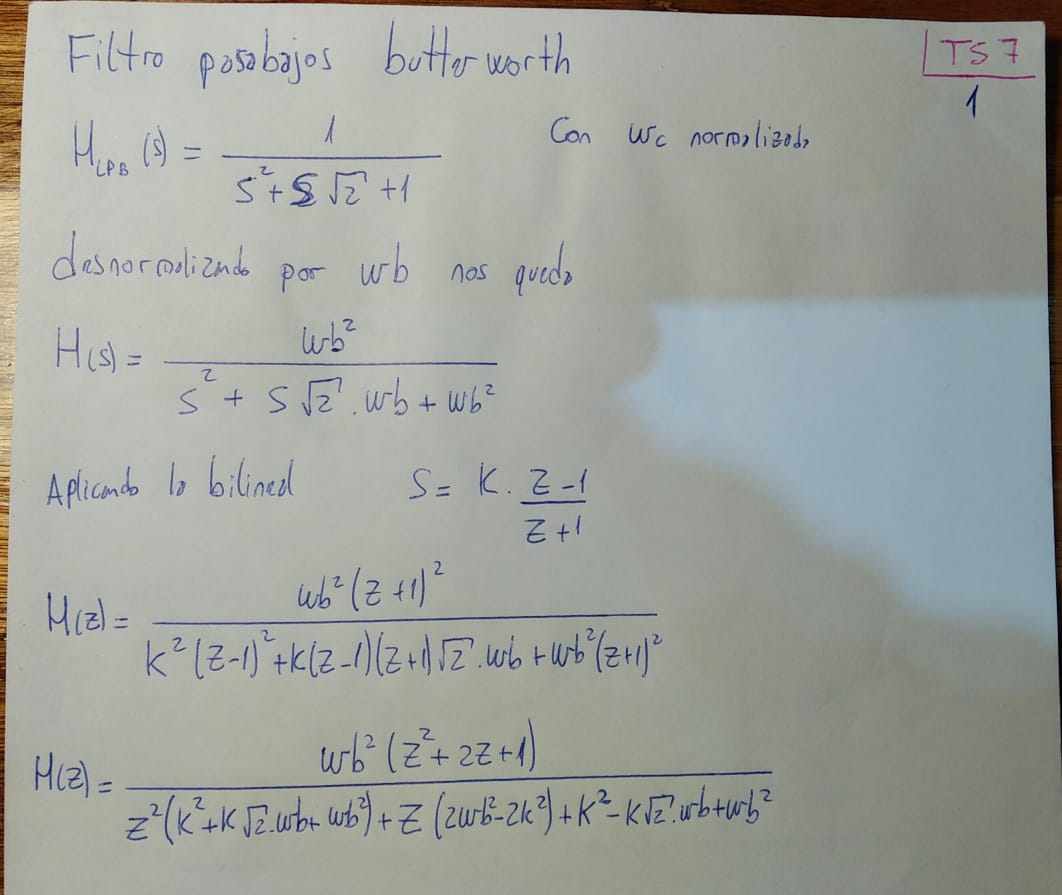 Filtro pasabajos butterworth
TS7
1
H_LPB (s) = 1 / (s² + s √2 + 1)
Con wc normalizada
desnormalizando por wb nos queda
H(s) = wb² / (s² + s √2 . wb + wb²)
Aplicando la bilineal s = k . (z-1) / (z+1)
H(z) = wb² (z+1)² / (k² (z-1)² + k(z-1)(z+1) √2 . wb + wb² (z+1)²)
H(z) = wb² (z² + 2z + 1) / (z² (k² + k √2 . wb + wb²) + z (2wb² - 2k²) + k² - k √2 . wb + wb²)